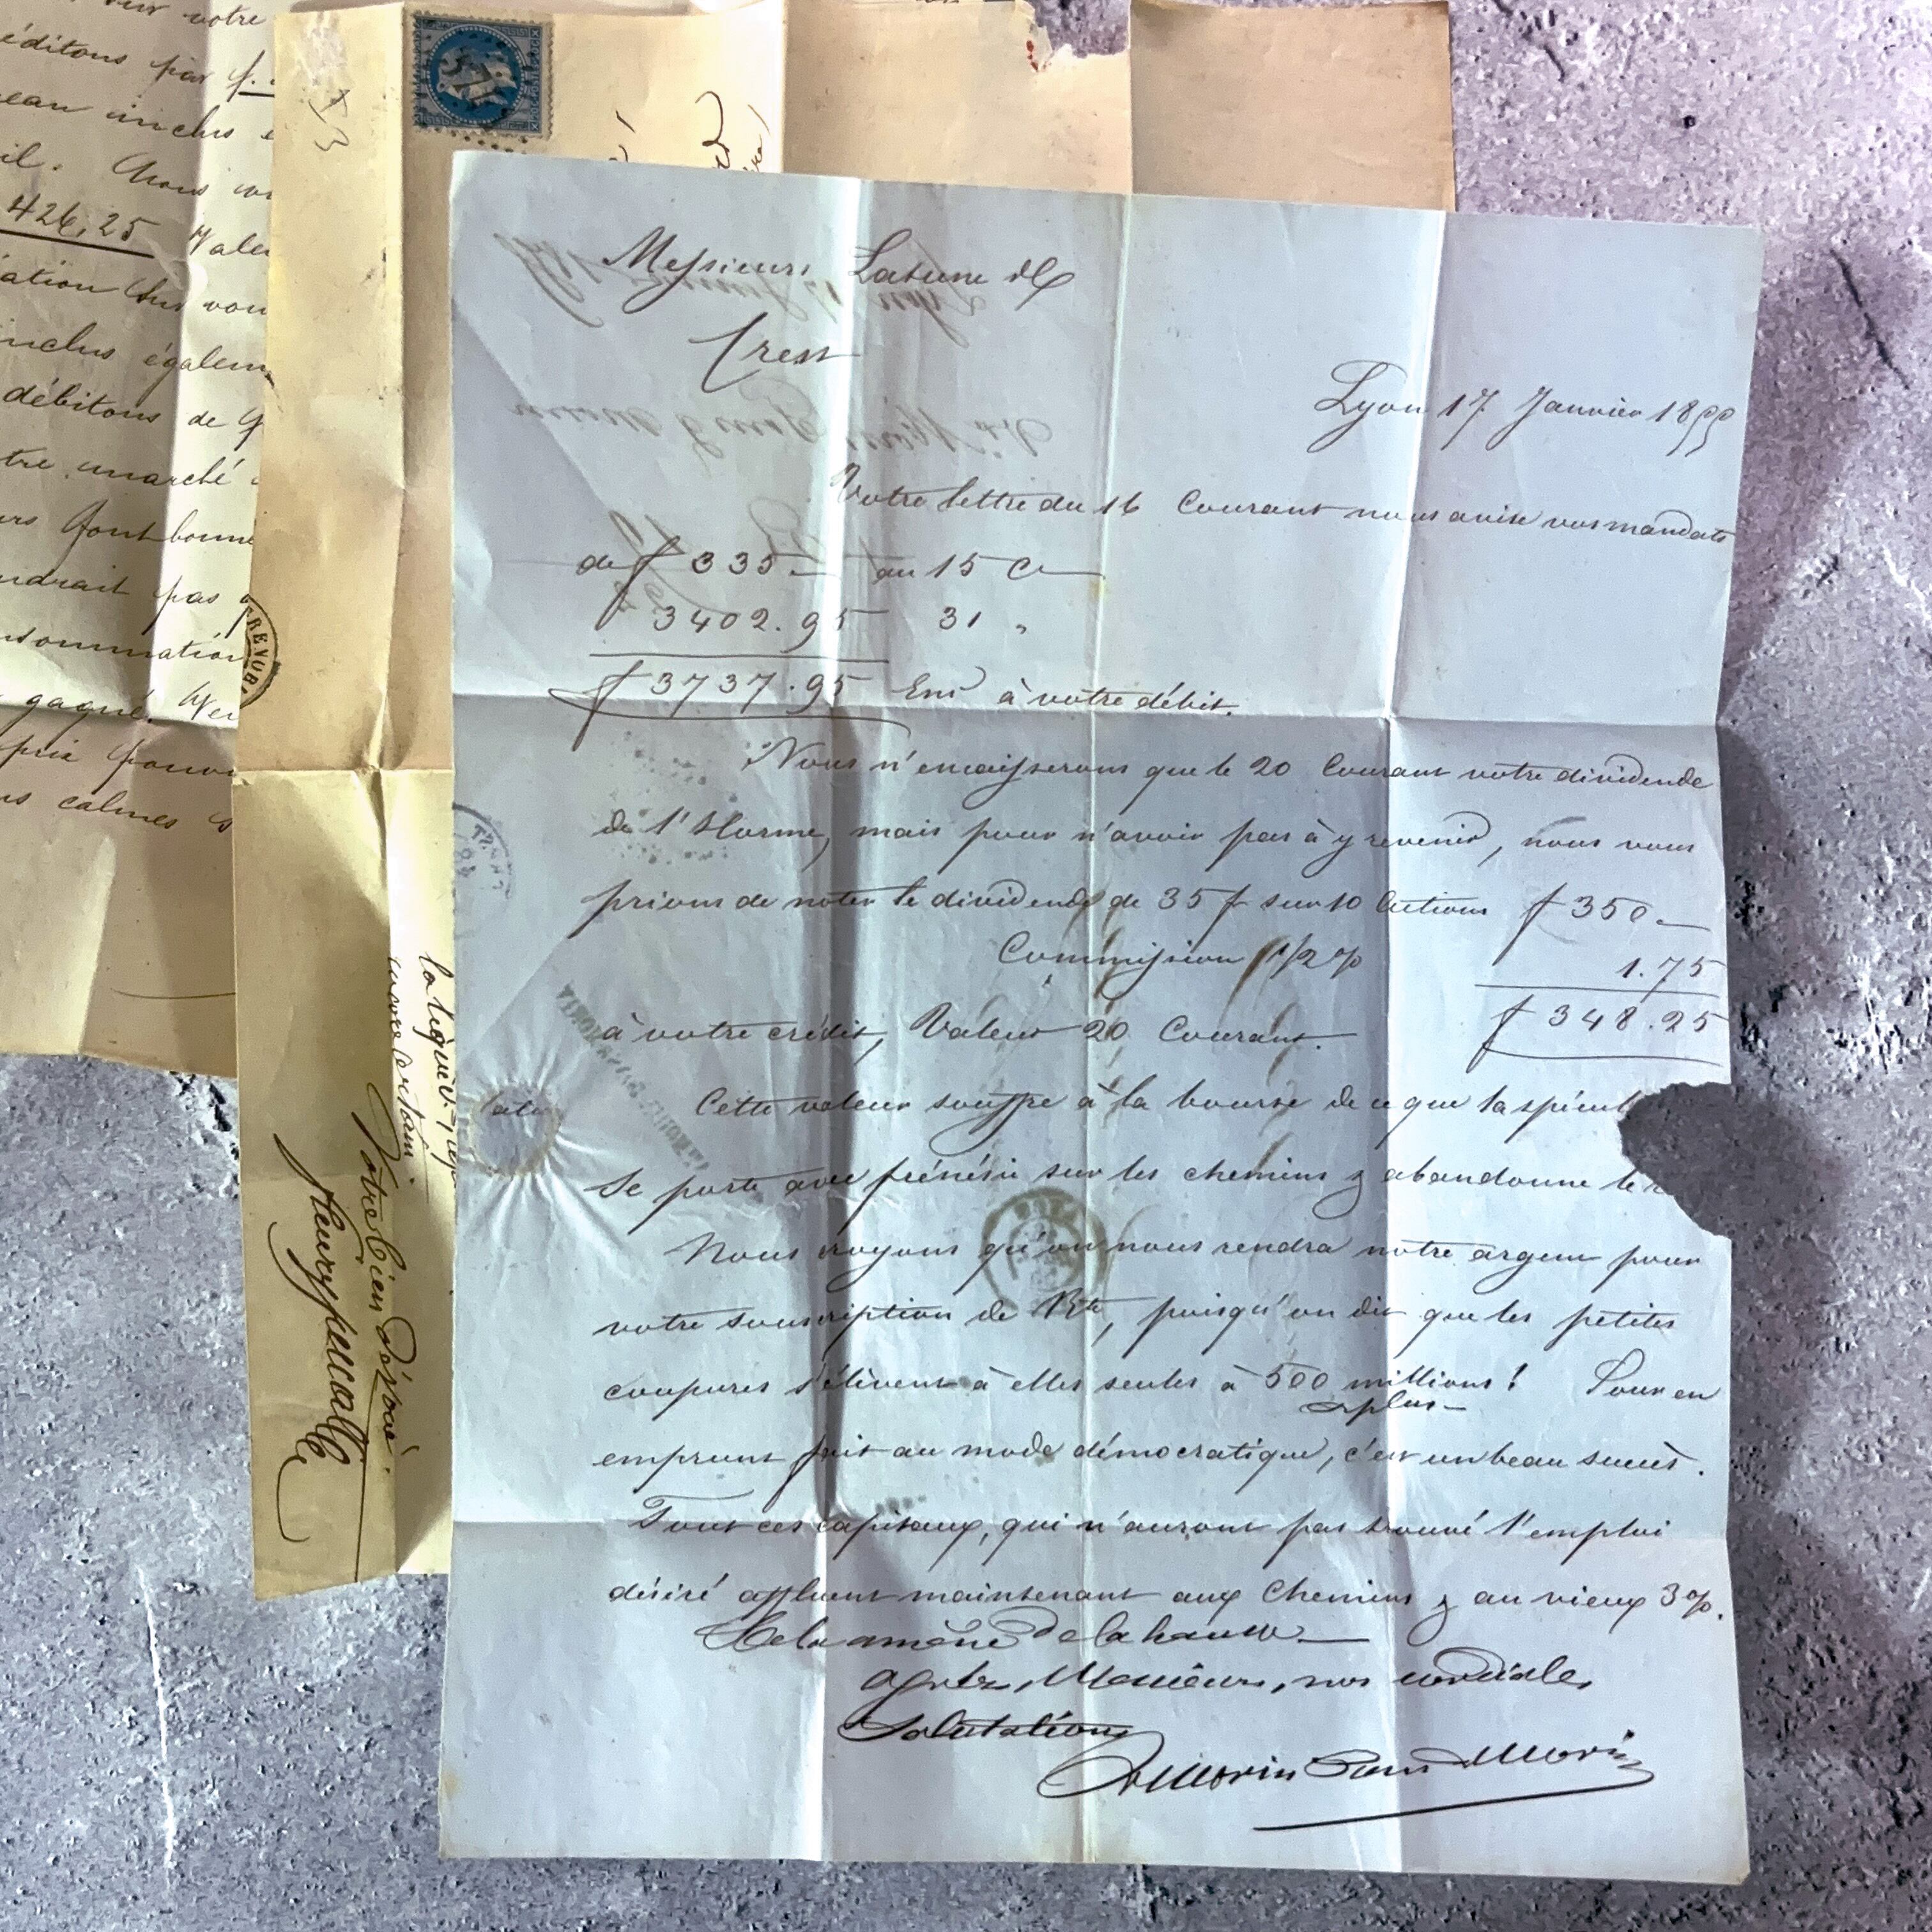 votre
éditons par f.
eau inclus
il. Nous
426,25 Vale
ation sur vou
inclus égalem
débitons de
tre marché
rs font bonne
ndrait pas
nsommation
gagné.
prix
ns calmes
Messieurs Latune &C
Crest
Lyon 17 Janvier 1855
Votre lettre du 16 Courant nous avise vos mandats
de f 335 — au 15 Ct
3402.95 31 "
f 3737.95 Ens à votre débit.
Nous n'encaisserons que le 20 Courant votre dividende
de l'Horme, mais pour n'avoir pas à y revenir, nous vous
prions de noter le dividende de 35 f sur 10 Actions f 350 —
Commission 1/2 % 1.75
à votre crédit, Valeur 20 Courant. f 348.25
Cette valeur souffre à la bourse de ce que la spécul
se porte avec frénésie sur les chemins & abandonne le
Nous croyons qu'on nous rendra notre argent pour
votre souscription de Rte, puisqu'on dit que les petites
coupures s'élèvent à elles seules à 500 millions! Pour un
& plus —
emprunt fait au mode démocratique, c'est un beau succès.
Tout ces capitaux, qui n'auront pas trouvé l'emploi
désiré affluent maintenant aux Chemins & au vieux 3 %.
Cela amène de la hausse —
Agréez, Messieurs, nos cordiales
Salutations
Morin Morin
Votre bien dévoué